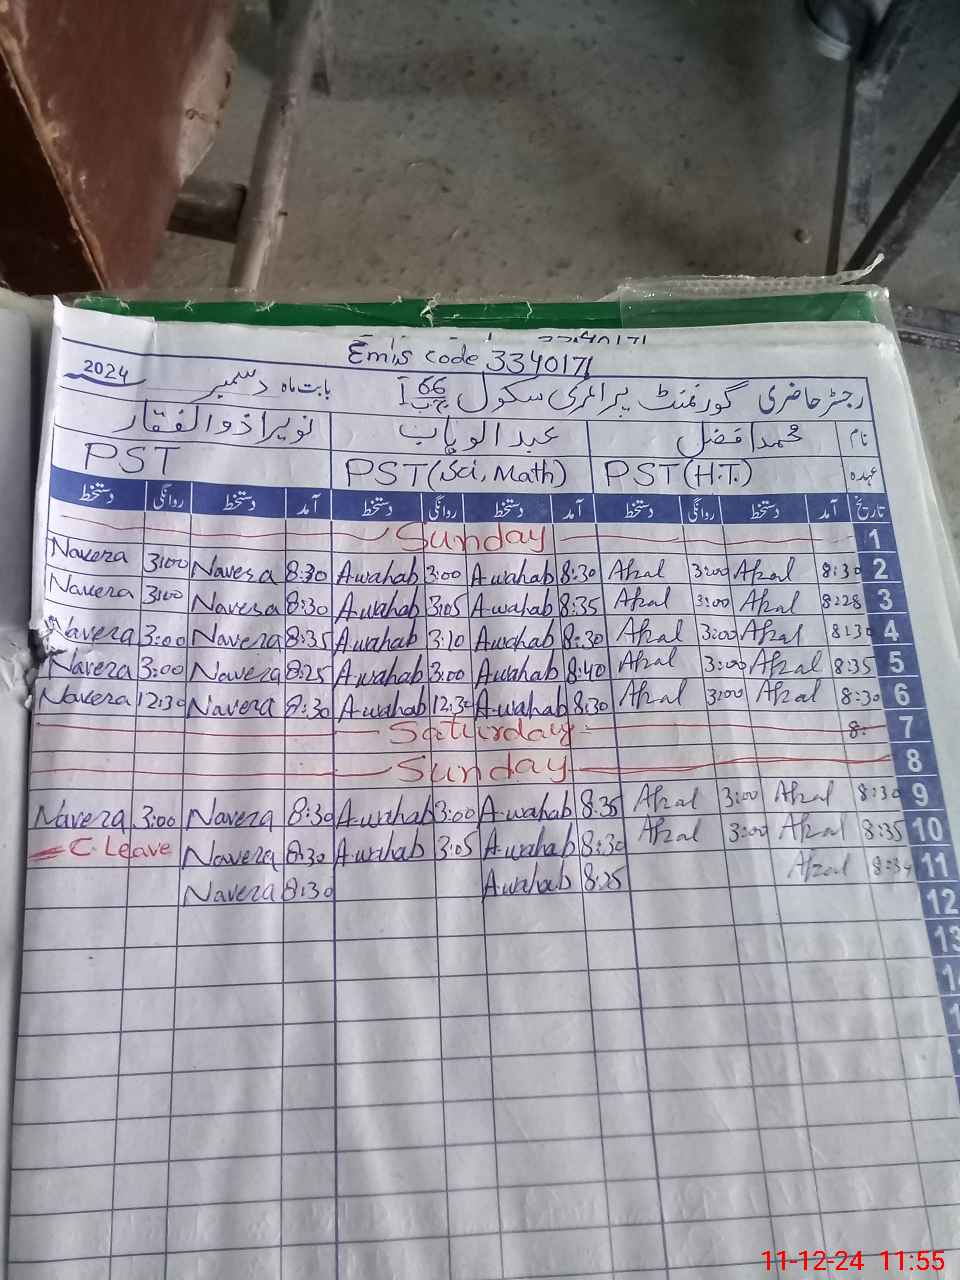 Emis code 3340171
رجسٹر حاضری گورنمنٹ پرائمری سکول 66 ج ب I بابت ماہ دسمبر 2024
نام محمد افضل عبد الوہاب نویرا ذوالفقار
عہدہ PST (H.T.) PST (Sci, Math) PST
تاریخ آمد دستخط روانگی دستخط آمد دستخط روانگی دستخط آمد دستخط روانگی دستخط
Sunday 1
Navera 3:00 Navera 8:30 A.wahab 3:00 A.wahab 8:30 Afzal 3:00 Afzal 8:30 2
Navera 3:00 Navera 8:30 A.wahab 3:05 A.wahab 8:35 Afzal 3:00 Afzal 8:28 3
Navera 3:00 Navera 8:35 A.wahab 3:10 A.wahab 8:30 Afzal 3:00 Afzal 8:30 4
Navera 3:00 Navera 8:25 A.wahab 3:00 A.wahab 8:40 Afzal 3:00 Afzal 8:35 5
Navera 12:30 Navera 8:30 A.wahab 12:30 A.wahab 8:30 Afzal 3:00 Afzal 8:30 6
Saturday 8: 7
Sunday 8
Navera 3:00 Navera 8:30 A.wahab 3:00 A.wahab 8:35 Afzal 3:00 Afzal 8:30 9
C. Leave Navera 8:30 A.wahab 3:05 A.wahab 8:30 Afzal 3:00 Afzal 8:35 10
Navera 8:30 A.wahab 8:25 Afzal 11
12
13
11-12-24 11:55